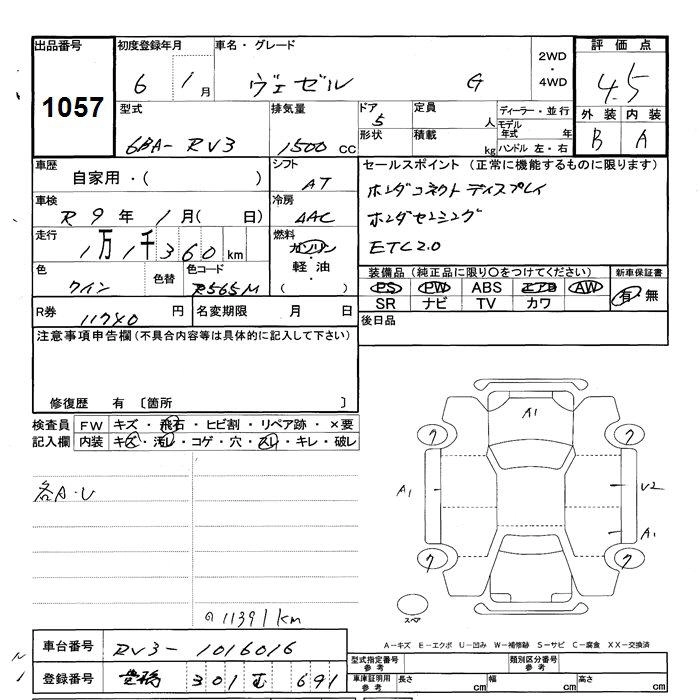 出品番号 初度登録年月 車名・グレード 2WD・4WD 評価点
1057 6年 1月 ヴェゼル G 4.5
型式 6BA-RV3 排気量 1500cc ドア 5 定員 人 ディーラー・並行
形状 積載 kg モデル年式 年 ハンドル 左・右
外装 内装
B A
車歴 自家用・( ) シフト AT
車検 R9年 1月( 日) 冷房 AAC
走行 1万1千360km 燃料 ガソリン・軽油・( )
色 ワイン 色替 色コード R565M
R券 11740円 名変期限 月 日
セールスポイント(正常に機能するものに限ります)
ホンダコネクトディスプレイ
ホンダセンシング
ETC2.0
装備品(純正品に限り○をつけてください) 新車保証書
PS PW ABS エアB AW 有・無
SR ナビ TV カワ
後日品
注意事項申告欄(不具合内容等は具体的に記入して下さい)
修復歴 有 〔箇所 〕
検査員 FW キズ・飛石・ヒビ割・リペア跡・×要
記入欄 内装 キズ・汚レ・コゲ・穴・スレ・キレ・破レ
各A・U
11391km
A1
ワ ワ
A1 U2
A1
ワ ワ
スペア
A-キズ E-エクボ U-凹み W-補修跡 S-サビ C-腐食 XX-交換済
車台番号 RV3-1016016
登録番号 豊橋 301 691
型式指定番号 参考 類別区分番号 参考
車庫証明用 参考 長さ cm 幅 cm 高さ cm